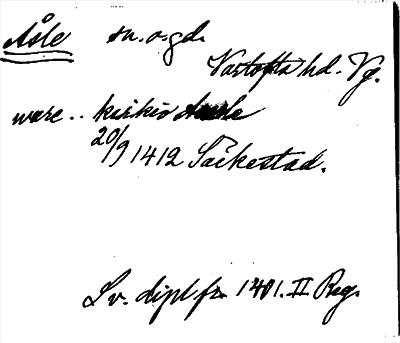 Åsle sn. o. gd.
Vartofta hd. Vg.
wore .. kirkio
20/9 1412 Säckestad.
Sv. dipl. fr. 1401. II Reg.